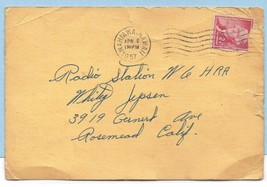 APR 4
1957
Radio Station W6HRA
Whitey Jepsen
3919 Ave
Rosemead Calif.